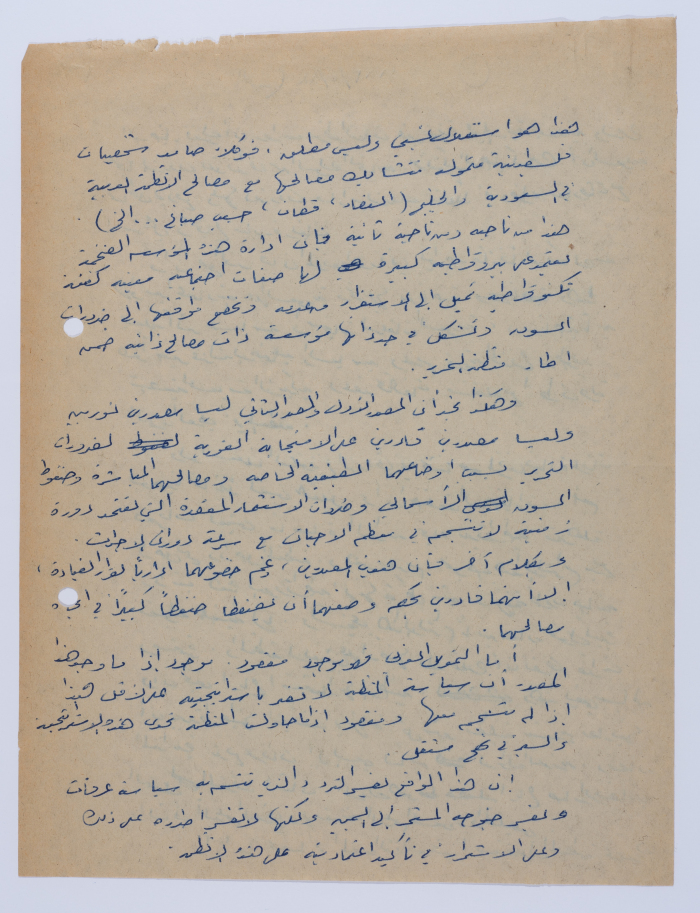 هذا هو استقلال نسبي وليس مطلق، فوكلاء صامد شخصيات
فلسطينية متمولة تتشابك مصالحها مع مصالح الأنظمة العربية
في السعودية والخليج (، قطان، حسيب صباغ ... الخ)
هذا من ناحيه ومن ناحية ثانية فإن ادارة هذه المؤسسه الضخمة
تعتمد على بيروقراطيه كبيرة لها صفات اجتماعيه معينه كفئة
تكنوقراطيه تميل إلى الاستقرار وتخضع مواقفها إلى ضرورات
السوق وتشكل بحد ذاتها مؤسسة ذات مصالح ذاتيه ضمن
اطار منظمة التحرير.
وهكذا نجد أن المصدر الأول والمصدر الثاني ليسا مصدرين ثوريين
وليسا مصدرين قادرين على الاستجابة الفورية لضرورات
التحرير بسبب اوضاعهما الطبقية الخاصه ومصالحهما المباشرة وضغوط
السوق الرأسمالي وضرورات الاستثمار المعقدة التي تعتمد دورة
زمنية لا تنسجم في معظم الاحيان مع سرعة دوران الاحداث.
وبكلام آخر فإن هذين المصدرين، رغم خضوعهما لقرار القيادة،
إلا أنهما قادرين بحكم وضعهما أن يضغطا ضغطاً كبيرًا في اتجاه
مصالحهما.
أما التمويل فهو موجود مفقود. موجود إذا ما وجد هذا
المصدر أن سياسة المنظمة لا تضر باستراتيجيته على الأقل هذا
إذا لم تنسجم معها ومفقود إذا ما حاولت المنظمة تحدي هذه الاستراتيجية
والسير في نهج مستقل.
إن هذا الواقع يفسر التردد الذي تتسم به سياسة عرفات
ويفسر جنوحه المستمر إلى اليمين ولكنها لا تفسر اصراره على ذلك
وعلى الاستمرار في تأكيد اعتماديته على هذه الأنظمة.